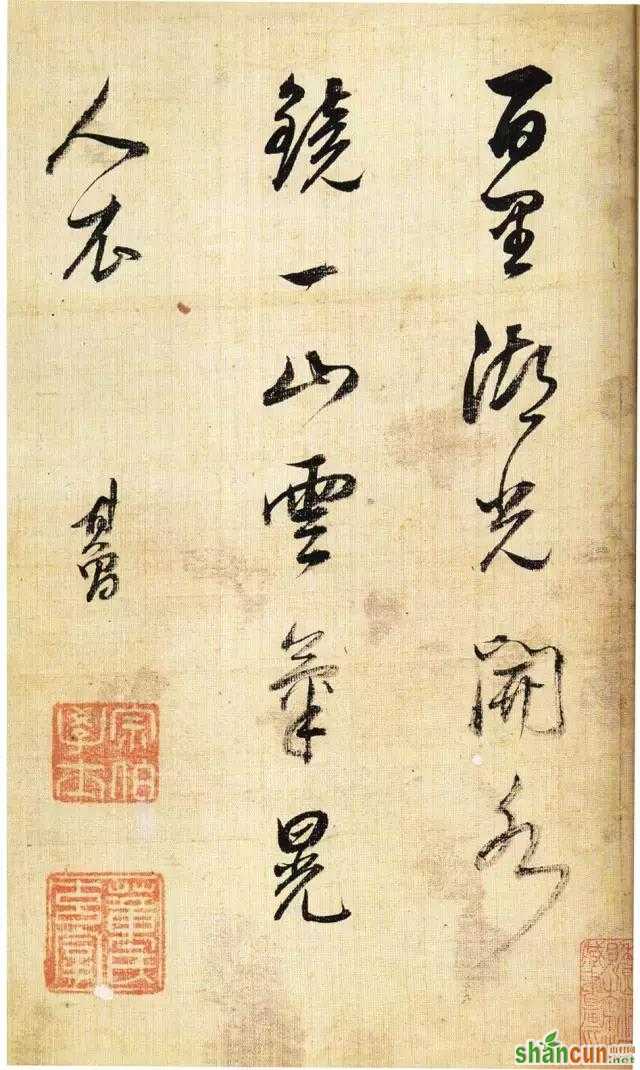 百里湖光開水
鏡一山雲氣晃
人衣
其昌
宗伯
學士
董氏
玄宰
shancun
山村网
.net